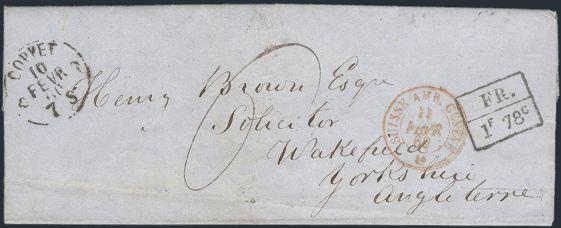 COPPET
10
FEVR
7 S
Henry Brown Esqre
Solicitor
Wakefield
Yorkshire
Angleterre
SUISSE AMB. GENEVE
11
FEVR
60
FR.
1f 78c